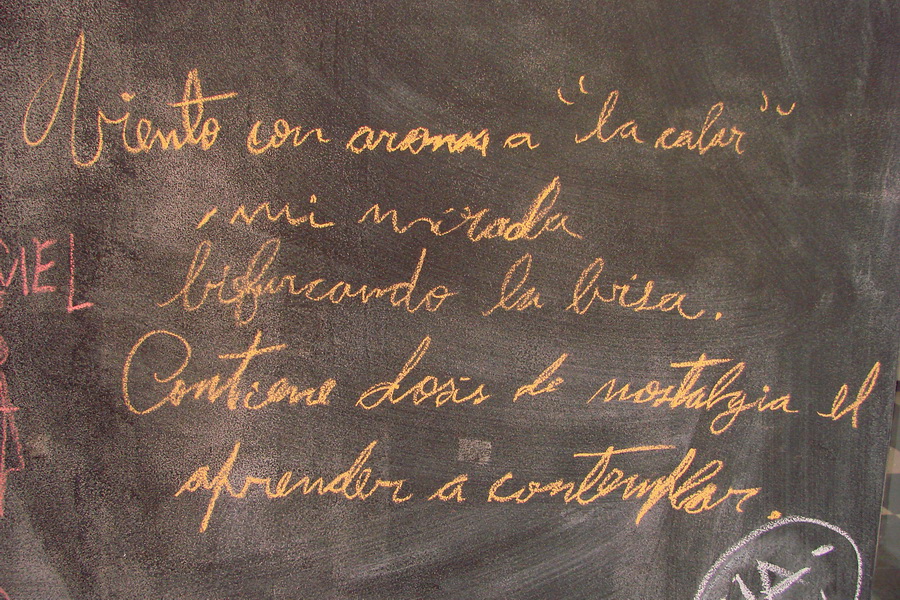 Viento con aroma a "la calar"
, mi mirada
bifurcando la brisa.
Contiene dosis de nostalgia el
aprender a contemplar.
MEL